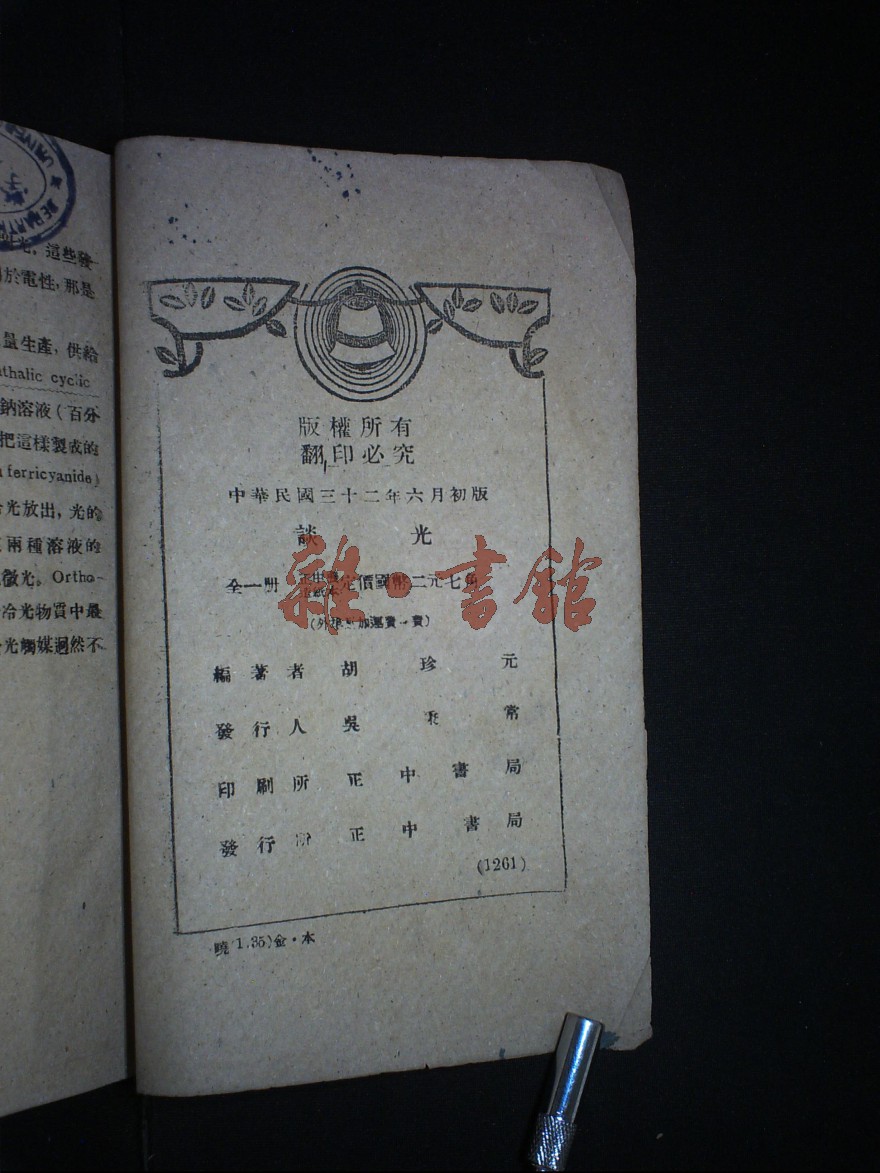 光，這些發
於電性，那是
量生產，供給
thalic cyclic
鈉溶液（百分
把這樣製成的
ferricyanide)
光放出，光的
兩種溶液的
微光。Ortho-
冷光物質中最
光觸媒迥然不
版權所有
翻印必究
中華民國三十二年六月初版
談光
全一册 定價國幣二元七角
（外埠酌加運費 費）
編著者 胡珍元
發行人 吳秉常
印刷所 正中書局
發行所 正中書局
(1261)
曉(1.35)金·本
雜·書館